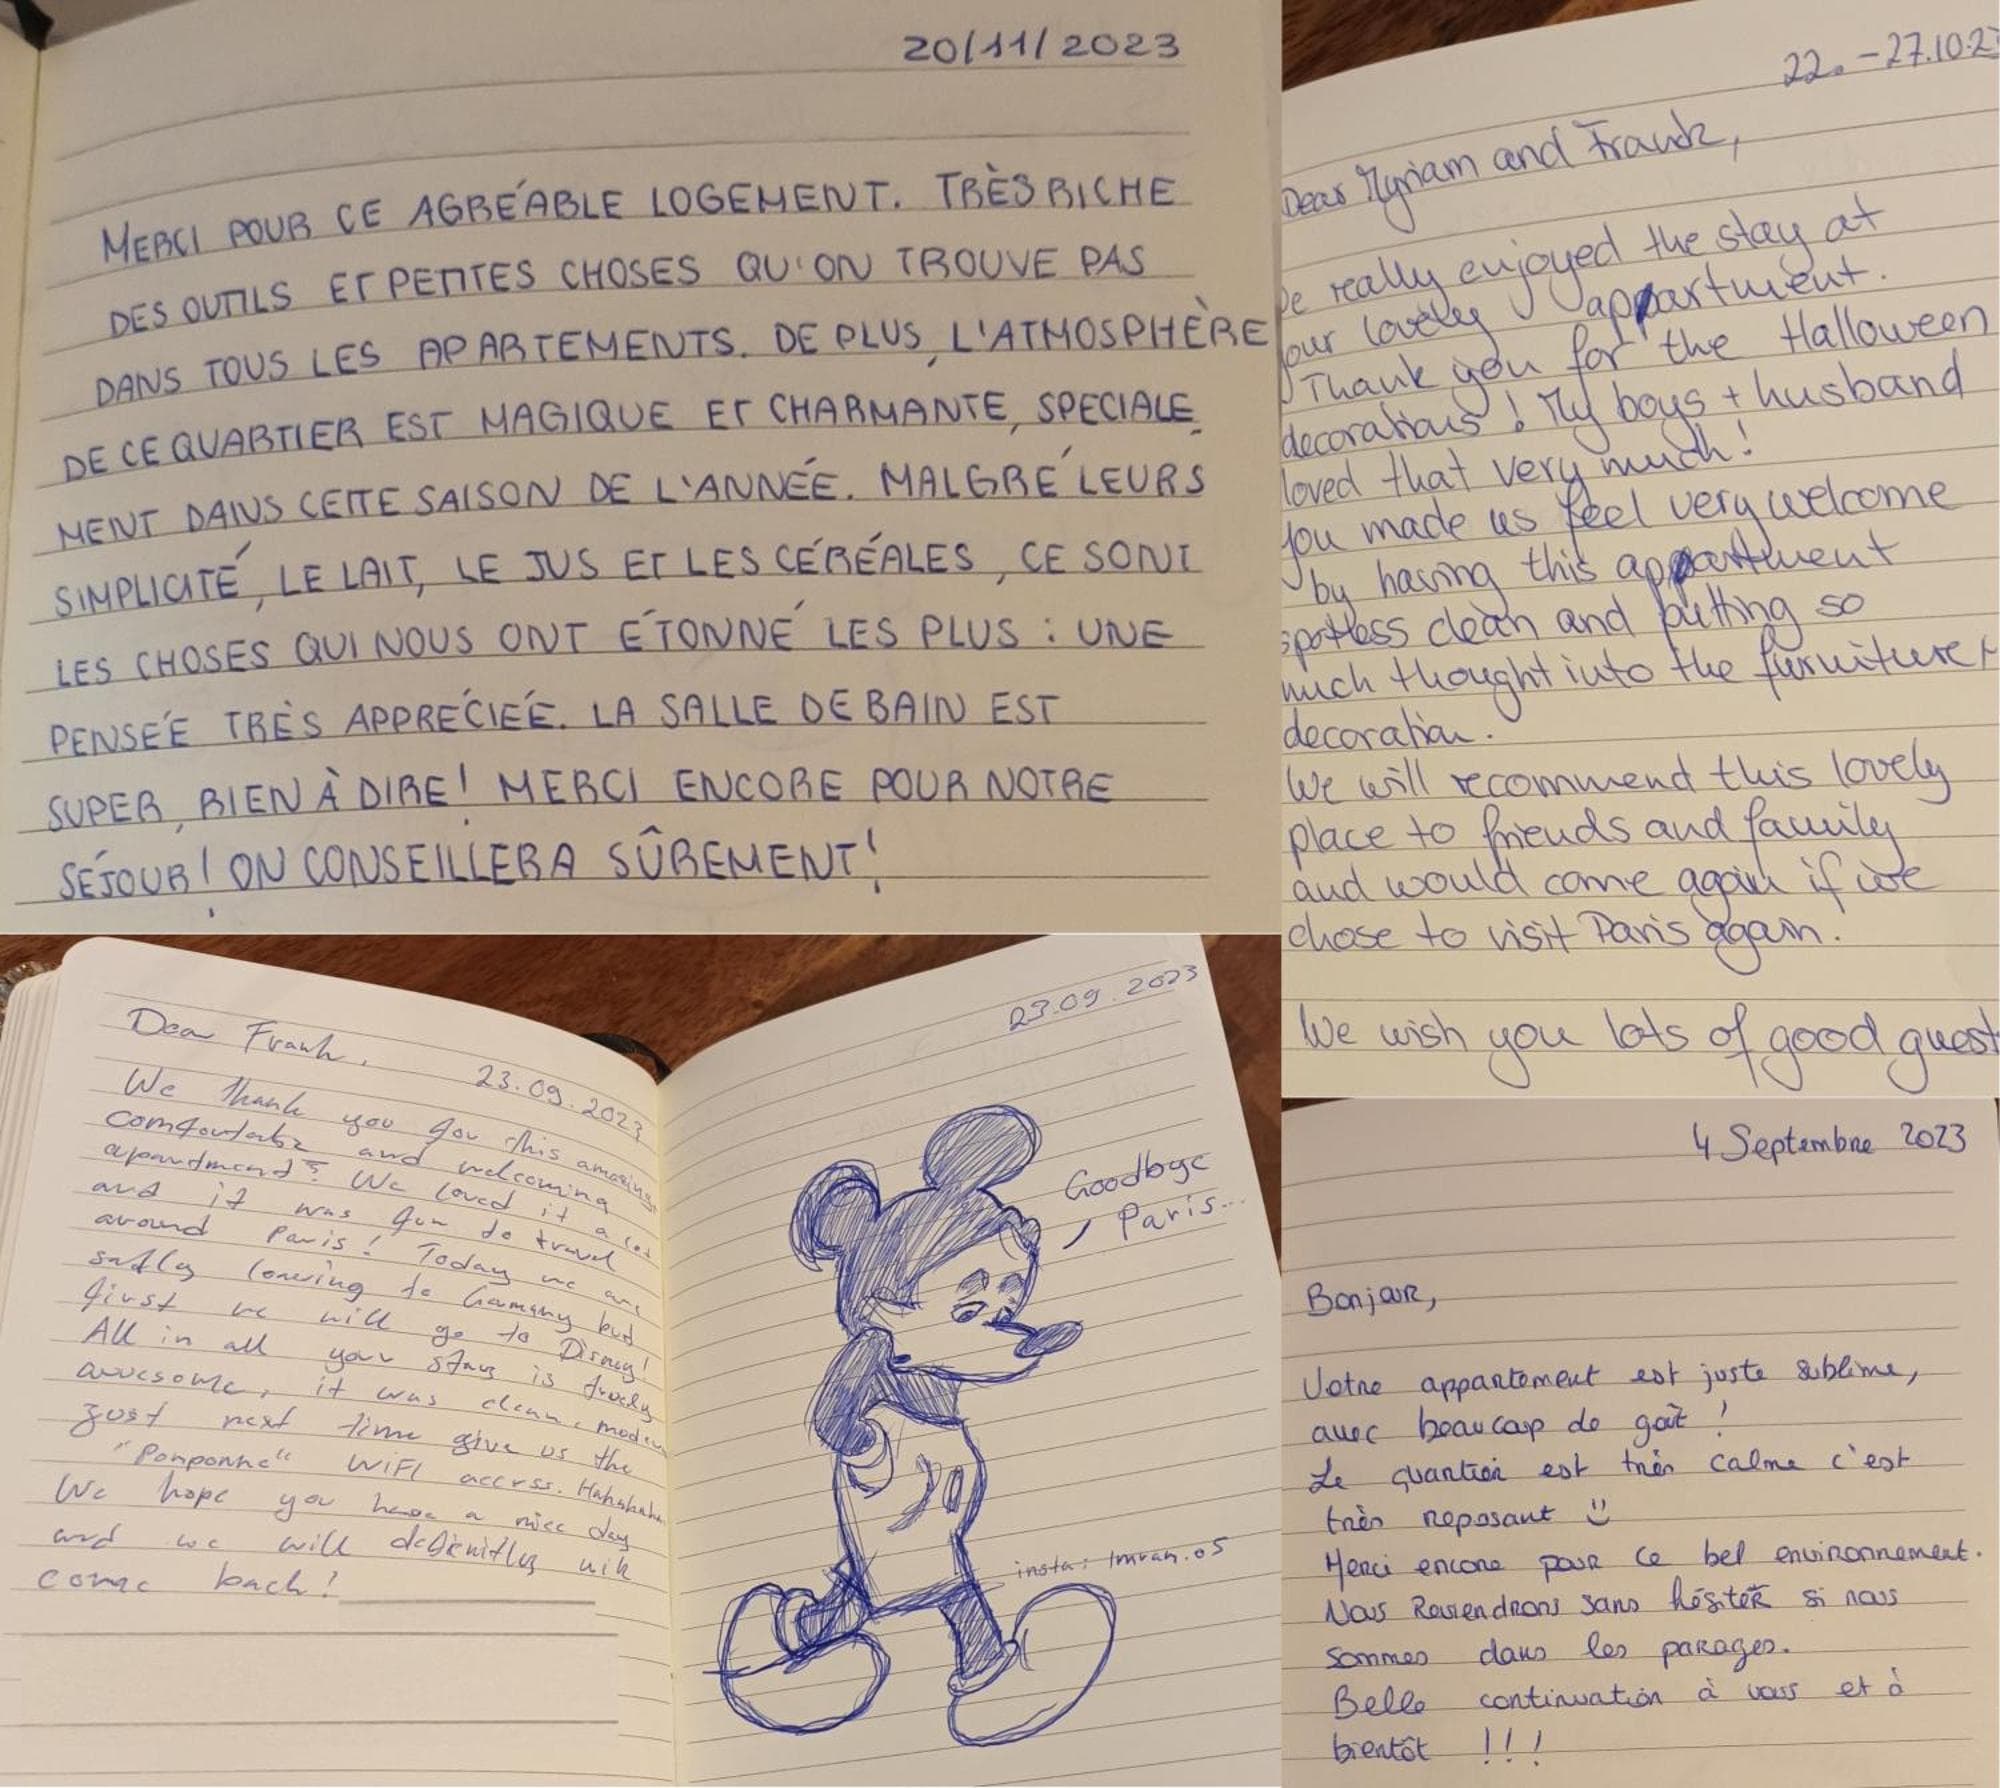 20/11/2023
MERCI POUR CE AGRÉABLE LOGEMENT. TRÈS RICHE
DES OUTILS ET PETITES CHOSES QU'ON TROUVE PAS
DANS TOUS LES APARTEMENTS. DE PLUS, L'ATMOSPHÈRE
DE CE QUARTIER EST MAGIQUE ET CHARMANTE, SPECIALE
MENT DANS CETTE SAISON DE L'ANNÉE. MALGRÉ LEURS
SIMPLICITÉ, LE LAIT, LE JUS ET LES CÉRÉALES, CE SONT
LES CHOSES QUI NOUS ONT ÉTONNÉ LES PLUS : UNE
PENSÉE TRÈS APPRÉCIÉE. LA SALLE DE BAIN EST
SUPER, RIEN À DIRE! MERCI ENCORE POUR NOTRE
SÉJOUR! ON CONSEILLERA SÛREMENT!
22. - 27.10.2
Dear Myriam and Frank,
e really enjoyed the stay at
our lovely appartment.
Thank you for the Halloween
decorations! My boys + husband
loved that very much!
you made us feel very welcome
by having this appartment
spotless clean and putting so
much thought into the furniture +
decoration.
We will recommend this lovely
place to friends and family
and would come again if we
chose to visit Paris again.
We wish you lots of good guest
Dear Frank,
23.09.2023
We thank you for this amazing,
comfortable and welcoming
apartment! We loved it a lot
and it was fun to travel
around Paris! Today we are
sadly leaving to Gemany but
first we will go to Disney!
All in all your stay is truely
awesome, it was clean, modern
Just next time give us the
"Ponponne" WiFI access. Hahahaha
We hope you have a nice day
and we will definitley wik
come back!
23.09.2023
Goodbye
Paris...
insta: Imran.05
4 Septembre 2023
Bonjour,
Votre appartement est juste sublime,
avec beaucoup de goût !
Le quartier est très calme c'est
très reposant
Merci encore pour ce bel environnement.
Nous Reviendrons sans hésiter si nous
sommes dans les parages.
Belle continuation à vous et à
bientôt !!!